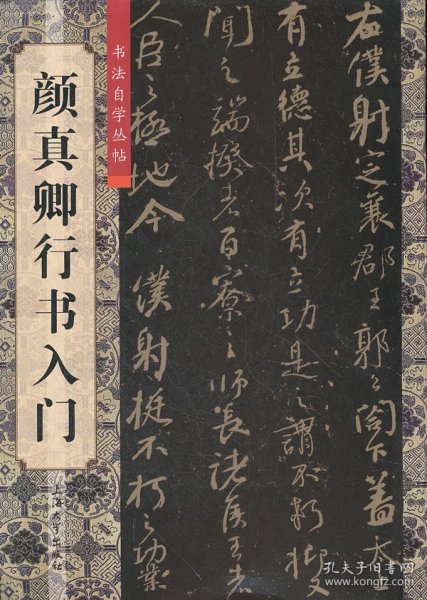 书法自学丛帖
颜真卿行书入门
右僕射定襄郡王郭公閤下蓋太上
有立德其次有立功是之謂不朽抑又
聞之端揆者百寮之師長諸侯王者
人臣之極地今僕射挺不朽之功業
上海大学出版社
孔夫子旧书网
www.kongfz.com